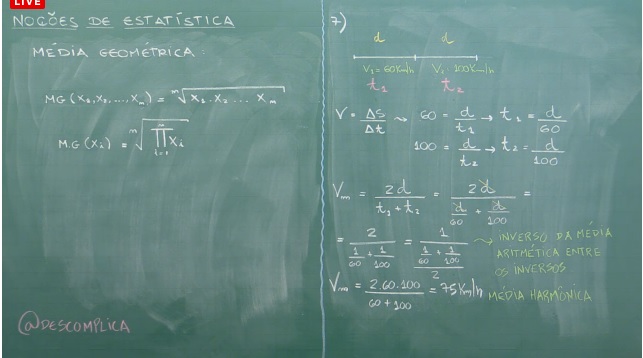 LIVE
NOÇÕES DE ESTATÍSTICA
MÉDIA GEOMÉTRICA:
MG(x₁, x₂, ..., xₘ) = ᵐ√(x₁ . x₂ ... xₘ)
MG(xᵢ) = ᵐ√(∏ xᵢ)
i=1
@DESCOMPLICA
7)
d d
V₁=60Km/h V₂=100Km/h
t₁ t₂
V = ΔS/Δt ⇝ 60 = d/t₁ → t₁ = d/60
100 = d/t₂ → t₂ = d/100
Vₘ = 2d/(t₁ + t₂) = 2d/(d/60 + d/100) =
= 2/(1/60 + 1/100) = 1/((1/60 + 1/100)/2) ⇝ INVERSO DA MÉDIA
ARITMÉTICA ENTRE
OS INVERSOS
Vₘ = 2.60.100/(60+100) = 75Km/h MÉDIA HARMÔNICA